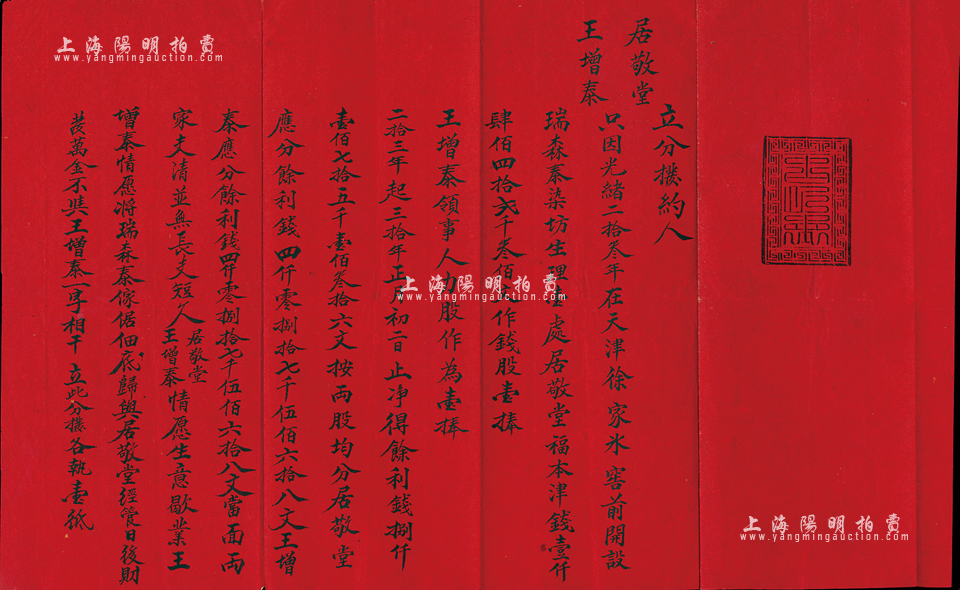 居敬堂
王增泰
立分撥約人
只因光緒二拾叁年在天津徐家氷窖前開設
瑞森泰染坊生理壹處居敬堂福本津錢壹仟
肆佰四拾弍千叁佰 作錢股壹捧
王增泰領事人力股作為壹捧
二拾三年起三拾年正月初二日止净得餘利錢捌仟
壹佰七拾五千壹佰叁拾六文按両股均分居敬堂
應分餘利錢四仟零捌拾七千伍佰六拾八文王增
泰應分餘利錢四仟零捌拾七千伍佰六拾八文當面両
家夫清並無長支短人居敬堂王增泰情愿生意歇業王
增泰情愿将瑞森泰傢倨佃底歸與居敬堂經管日後財
發萬金不與王增泰一字相干立此分撥各執壹紙
上海陽明拍賣
www.yangmingauction.com
上海陽明拍賣
www.yangmingauction.com
上海陽明拍賣
www.yangmingauction.com